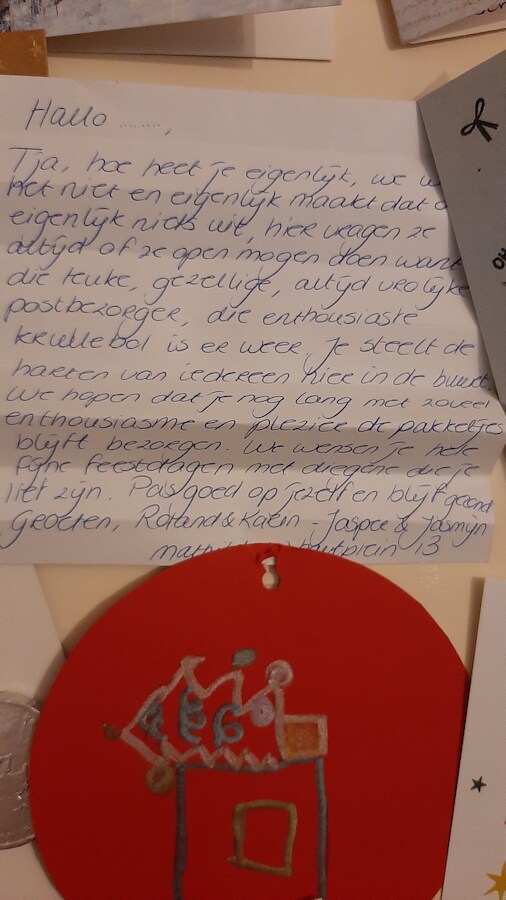 Hallo ........,
Tja, hoe heet je eigenlijk, we
het niet en eigenlijk maakt dat
eigenlijk niets uit, hier vragen ze
altijd of ze open mogen doen want
die leuke, gezellige, altijd vrolijke
postbezorger, die enthousiaste
krullebol is er weer. Je steelt de
harten van iedereen hier in de buurt.
We hopen dat je nog lang met zoveel
enthousiasme en plezier de pakketjes
blijft bezorgen. We wensen je hele
fijne feestdagen met diegene die je
lief zijn. Pas goed op jezelf en blijf gezond
Groeten, Roland & Karin - Jasper & Jasmijn
13
OH